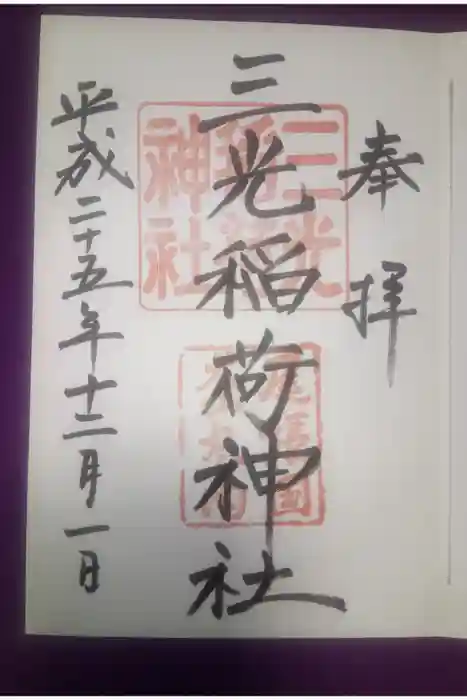 奉拝
三光稲荷神社
平成二十五年十二月一日
三光
稲荷
神社
尾張国